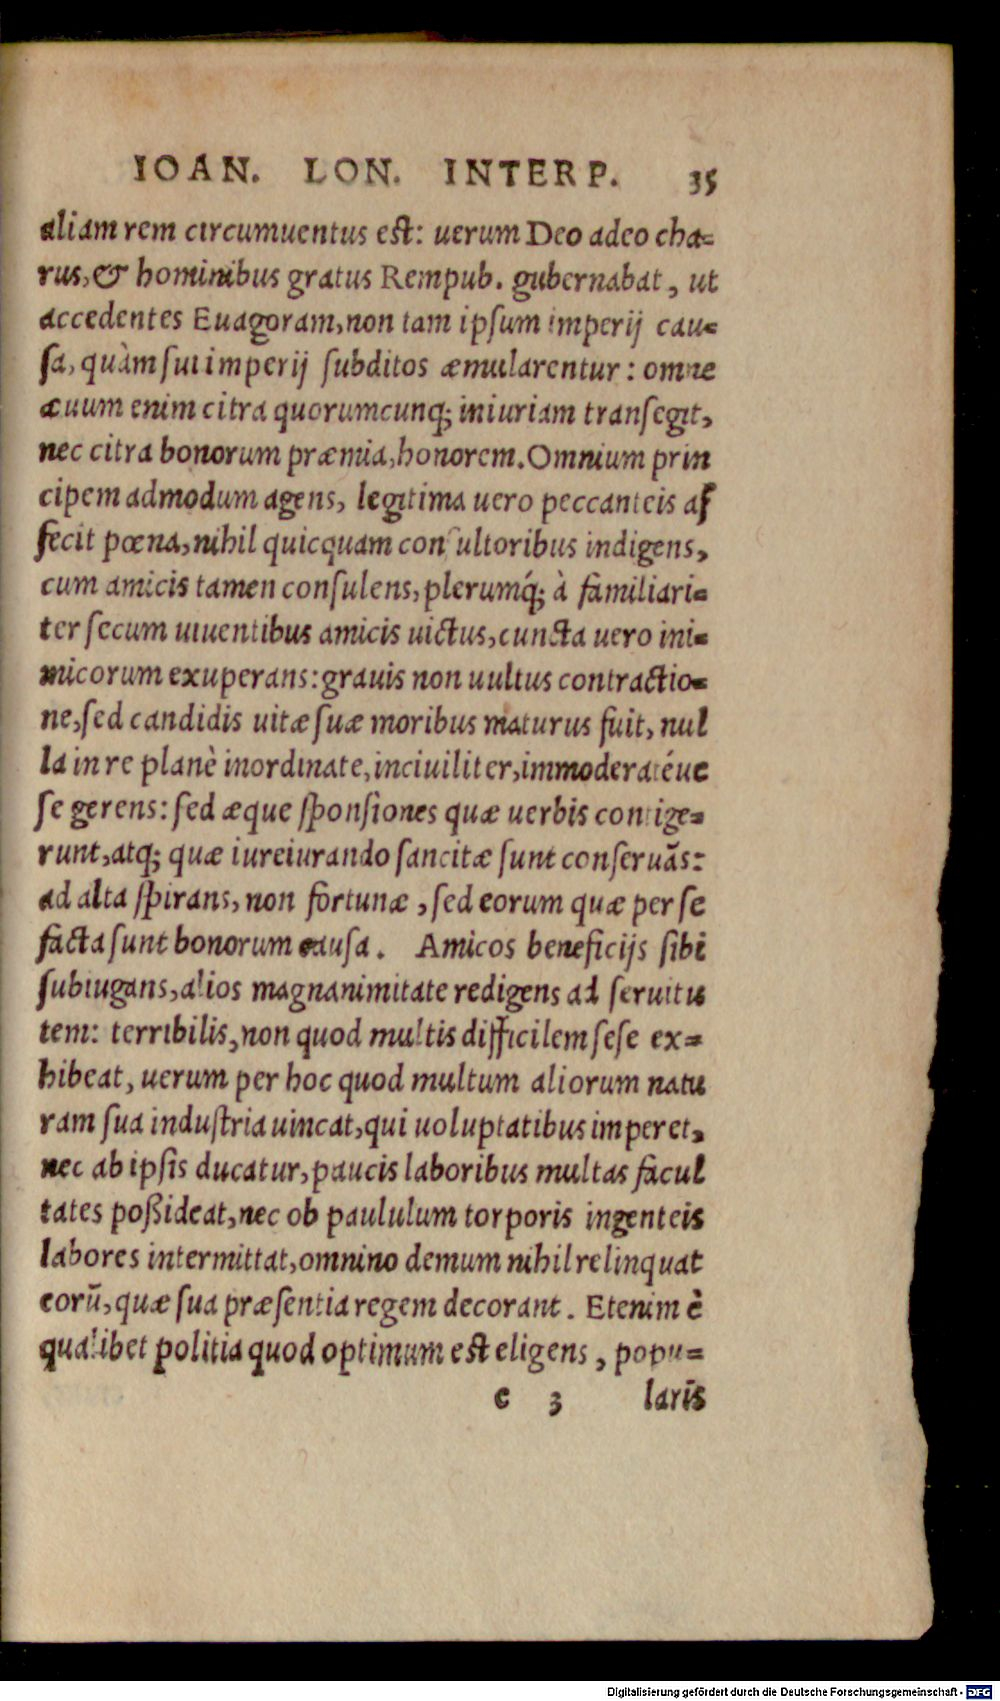 IOAN. LON. INTERP. 35
aliam rem circumuentus est: uerum Deo adeo cha=
rus, & hominibus gratus Rempub. gubernabat, ut
accedentes Euagoram, non tam ipsum imperij cau=
sa, quàm sui imperij subditos æmularentur: omne
æuum enim citra quorumcunq; iniuriam transegit,
nec citra bonorum præmia, honorem. Omnium prin
cipem admodum agens, legitima uero peccanteis af
fecit pœna, nihil quicquam consultoribus indigens,
cum amicis tamen consulens, plerumq́; à familiari=
ter secum uiuentibus amicis uictus, cuncta uero ini=
micorum exuperans: grauis non uultus contractio=
ne, sed candidis uitæ suæ moribus maturus fuit, nul
la in re planè inordinate, inciuiliter, immoderatéue
se gerens: sed æque sponsiones quæ uerbis contige=
runt, atq; quæ iureiurando sancitæ sunt conseruãs:
ad alta spirans, non fortunæ, sed eorum quæ per se
facta sunt bonorum causa. Amicos beneficijs sibi
subiugans, alios magnanimitate redigens ad seruitu
tem: terribilis, non quod multis difficilem sese ex=
hibeat, uerum per hoc quod multum aliorum natu
ram sua industria uincat, qui uoluptatibus imperet,
nec ab ipsis ducatur, paucis laboribus multas facul
tates poßideat, nec ob paululum torporis ingenteis
labores intermittat, omnino demum nihil relinquat
eorũ, quæ sua præsentia regem decorant. Etenim è
qualibet politia quod optimum est eligens, popu=
c 3 laris
Digitalisierung gefördert durch die Deutsche Forschungsgemeinschaft - DFG